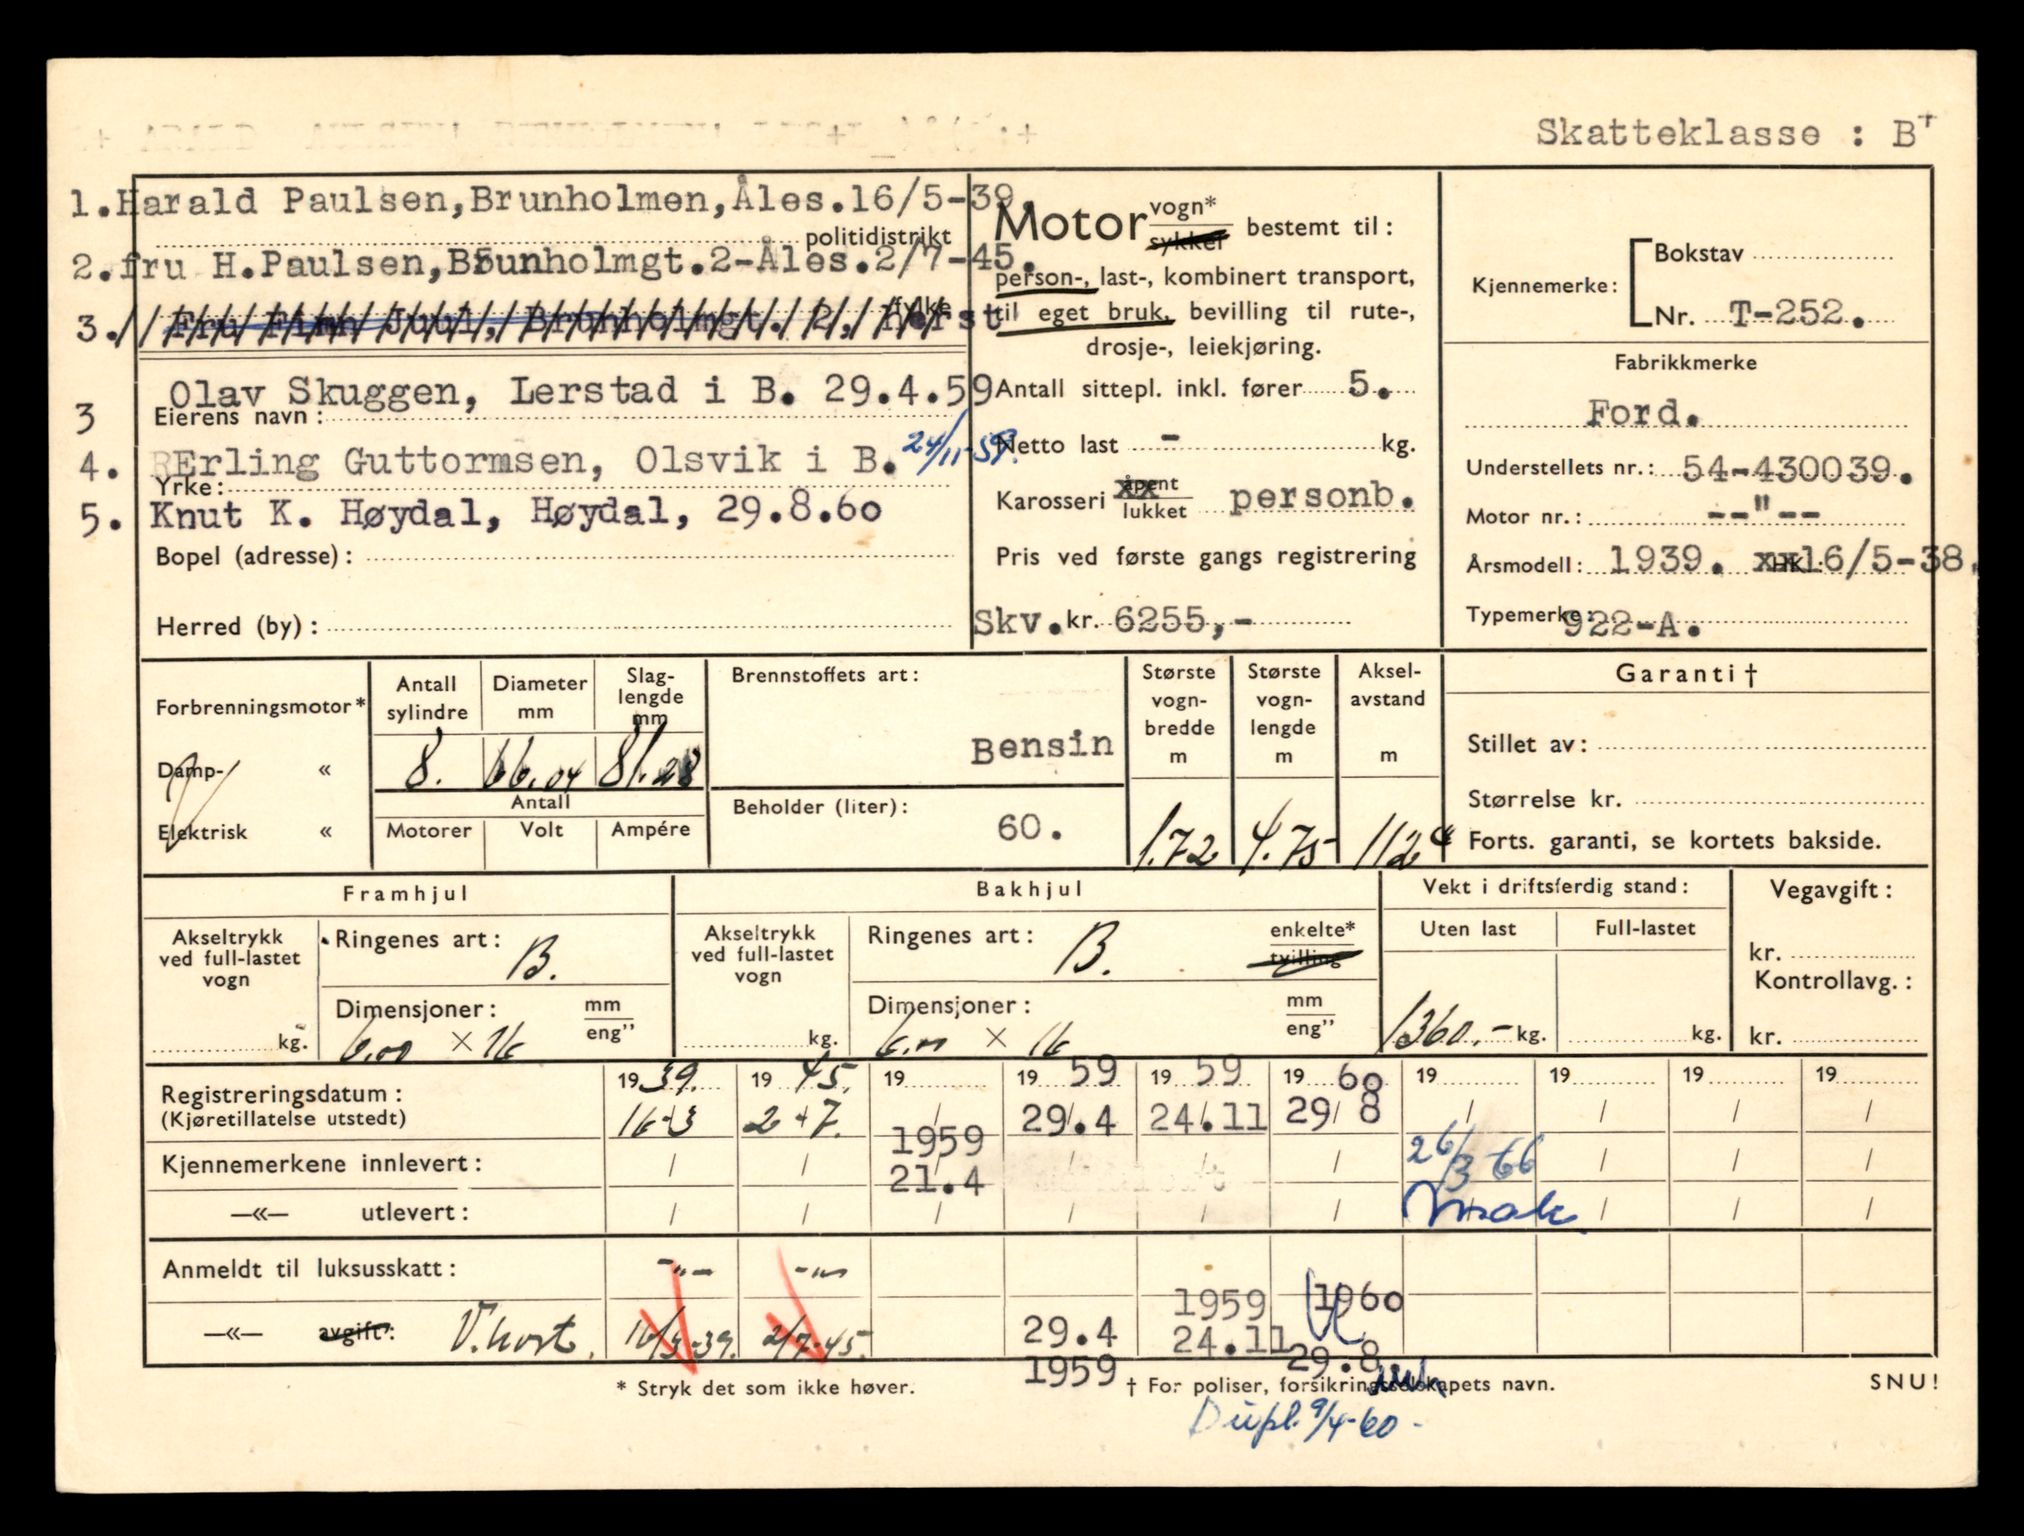 Skatteklasse : B+
1.Harald Paulsen,Brunholmen,Åles.16/5-39.
politidistrikt
2.fru H.Paulsen,Brunholmgt.2-Åles.2/7-45.
fylke
3. Fru Finn Juul, Brunholmgt. 2, Herst
3 Olav Skuggen, Lerstad i B. 29.4.59
Eierens navn :
4. Erling Guttormsen, Olsvik i B. 24/11-59.
Yrke:
5. Knut K. Høydal, Høydal, 29.8.60
Bopel (adresse) :
Herred (by) :
Motor vogn* sykkel bestemt til :
person-, last-, kombinert transport,
til eget bruk, bevilling til rute-,
drosje-, leiekjøring.
Antall sittepl. inkl. fører 5.
Netto last - kg.
Karosseri åpent lukket personb.
Pris ved første gangs registrering
Skv. kr. 6255,-
Kjennemerke: Bokstav
Nr. T-252.
Fabrikkmerke
Ford.
Understellets nr.: 54-430039.
Motor nr.: --"--
Årsmodell: 1939. HK.: 16/5-38.
Typemerke: 922-A.
Forbrenningsmotor*
Damp- «
Elektrisk «
Antall sylindre
Diameter mm
Slag-lengde mm
8. 66.04 81.28
Antall
Motorer Volt Ampére
Brennstoffets art :
Bensin
Beholder (liter) :
60.
Største vogn-bredde m
1.72
Største vogn-lengde m
4.75
Aksel-avstand m
112"
Garanti †
Stillet av :
Størrelse kr.
Forts. garanti, se kortets bakside.
Framhjul
Akseltrykk ved full-lastet vogn
kg.
Ringenes art : B.
Dimensjoner : mm eng"
6.00 × 16
Bakhjul
Akseltrykk ved full-lastet vogn
kg.
Ringenes art : B. enkelte* tvilling
Dimensjoner : mm eng"
6.00 × 16
Vekt i driftsferdig stand :
Uten last Full-lastet
1360.- kg. kg.
Vegavgift :
kr.
Kontrollavg. :
kr.
Registreringsdatum : 19 39. 19 45. 19 19 59 19 59 19 60 19 19 19 19
(Kjøretillatelse utstedt) 16-3 2+7. / 29.4 24.11 29/8 / / / /
Kjennemerkene innlevert : / / 1959 21.4 / / / 26/3 66 / / /
—«— utlevert : / / / / / / / / /
Anmeldt til luksusskatt : -"- -"-
—«— avgift : V.kort. 16/3-39. 2/7-45. 29.4 1959 1959 24.11 1960 29.8
* Stryk det som ikke høver.
† For poliser, forsikringsselskapets navn.
SNU!
Dupl. 9/4-60-